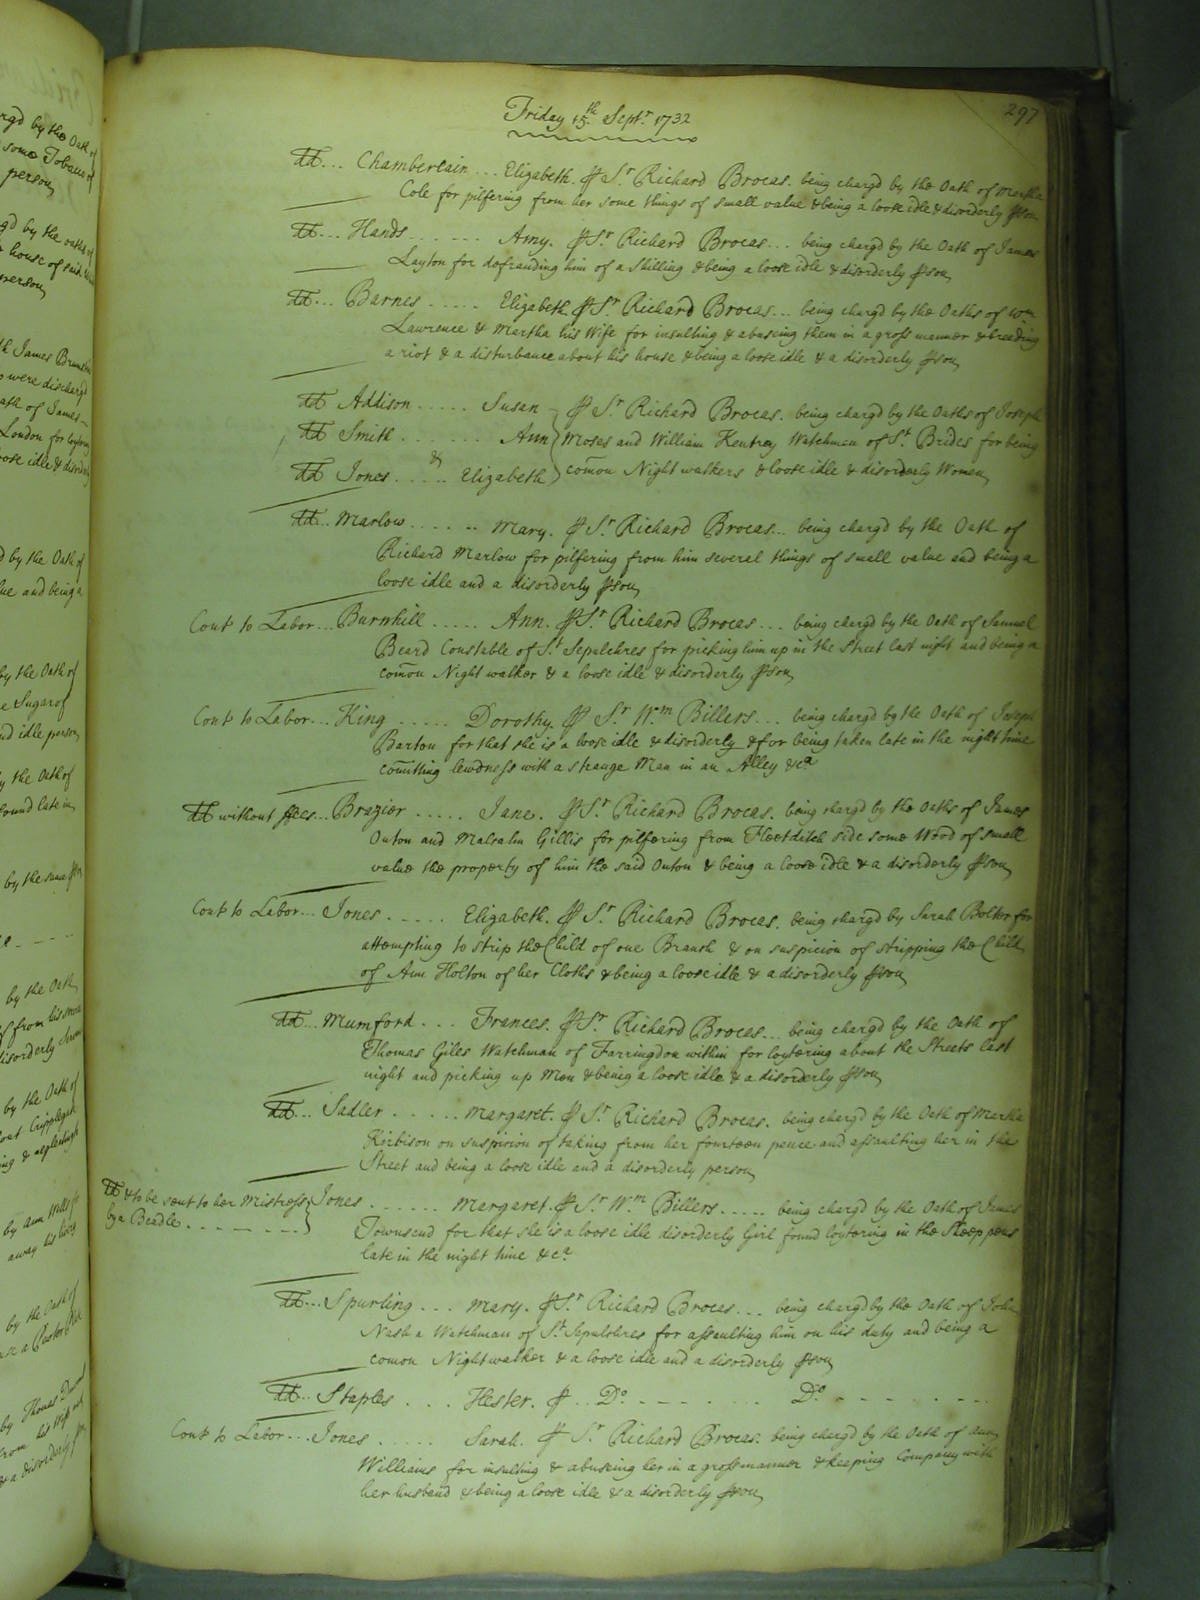 297
Friday 15th Septr. 1732
dd... Chamberlain... Elizabeth. ꝑ Sr. Richard Brocas. being chargd by the Oath of Martha
Cole for pilfering from her some things of small value & being a loose idle & disorderly ꝑson
dd... Hands...... Amy. ꝑ Sr. Richard Brocas... being chargd by the Oath of James
Layton for defrauding him of a Shilling & being a loose idle & disorderly ꝑson
dd... Barnes..... Elizabeth. ꝑ Sr. Richard Brocas... being chargd by the Oaths of Wm.
Lawrence & Martha his Wife for insulting & abuseing them in a gross manner & breeding
a riot & a disturbance about his house & being a loose idle & a disorderly ꝑson
dd Addison..... Susan ꝑ Sr. Richard Brocas. being chargd by the Oaths of Joseph
dd Smith....... Ann Moses and William Kentrey Watchmen of St. Brides for being
dd Jones..... & Elizabeth com̄on Night walkers & loose idle & disorderly Women
dd... Marlow...... Mary. ꝑ Sr. Richard Brocas... being chargd by the Oath of
Richard Marlow for pilfering from him several things of small value and being a
loose idle and a disorderly ꝑson
Cont to Labor... Burnhill..... Ann. ꝑ Sr. Richard Brocas... being chargd by the Oath of Samuel
Beard Constable of St. Sepulchres for picking him up in the Street last night and being a
com̄on Night walker & a loose idle & disorderly ꝑson
Cont to Labor... King..... Dorothy. ꝑ Sr. Wm. Billers... being chargd by the Oath of Joseph
Barton for that she is a loose idle & disorderly & for being taken late in the night time
com̄itting lewdness with a strange Man in an Alley &ca.
dd without ffees... Brazier..... Jane. ꝑ Sr. Richard Brocas. being chargd by the Oaths of James
Outon and Malcalm Gillis for pilfering from Fleetditch side some Wood of small
value the property of him the said Outon & being a loose idle & a disorderly ꝑson
Cont to Labor... Jones..... Elizabeth. ꝑ Sr. Richard Brocas. being chargd by Sarah Bolter for
attempting to strip the Child of one Branch & on suspicion of stripping the Child
of Ann Holton of her Cloths & being a loose idle & a disorderly ꝑson
dd... Mumford... Frances. ꝑ Sr. Richard Brocas... being chargd by the Oath of
Thomas Giles Watchman of Farringdon within for loytering about the Streets last
night and picking up Men & being a loose idle & a disorderly ꝑson
dd... Sadler..... Margaret. ꝑ Sr. Richard Brocas. being chargd by the Oath of Martha
Kirbison on suspicion of taking from her fourteen pence and assaulting her in the
Street and being a loose idle and a disorderly person
dd & to be sent to her Mistress Jones...... Margaret. ꝑ Sr. Wm. Billers..... being chargd by the Oath of James
by a Beadle........ Townsend for that she is a loose idle disorderly Girl found loytering in the Sheep pens
late in the night time &ca.
dd... Spurling... Mary. ꝑ Sr. Richard Brocas... being chargd by the Oath of John
Nash a Watchman of St. Sepulchres for assaulting him on his duty and being a
comon Nightwalker & a loose idle and a disorderly ꝑson
dd... Staples.... Hester. ꝑ.. Do........ Do.........
Cont to Labor... Jones..... Sarah. ꝑ Sr. Richard Brocas. being chargd by the Oath of Ann
Williams for insulting & abuseing her in a gross manner & keeping Company with
her husband & being a loose idle & a disorderly ꝑson